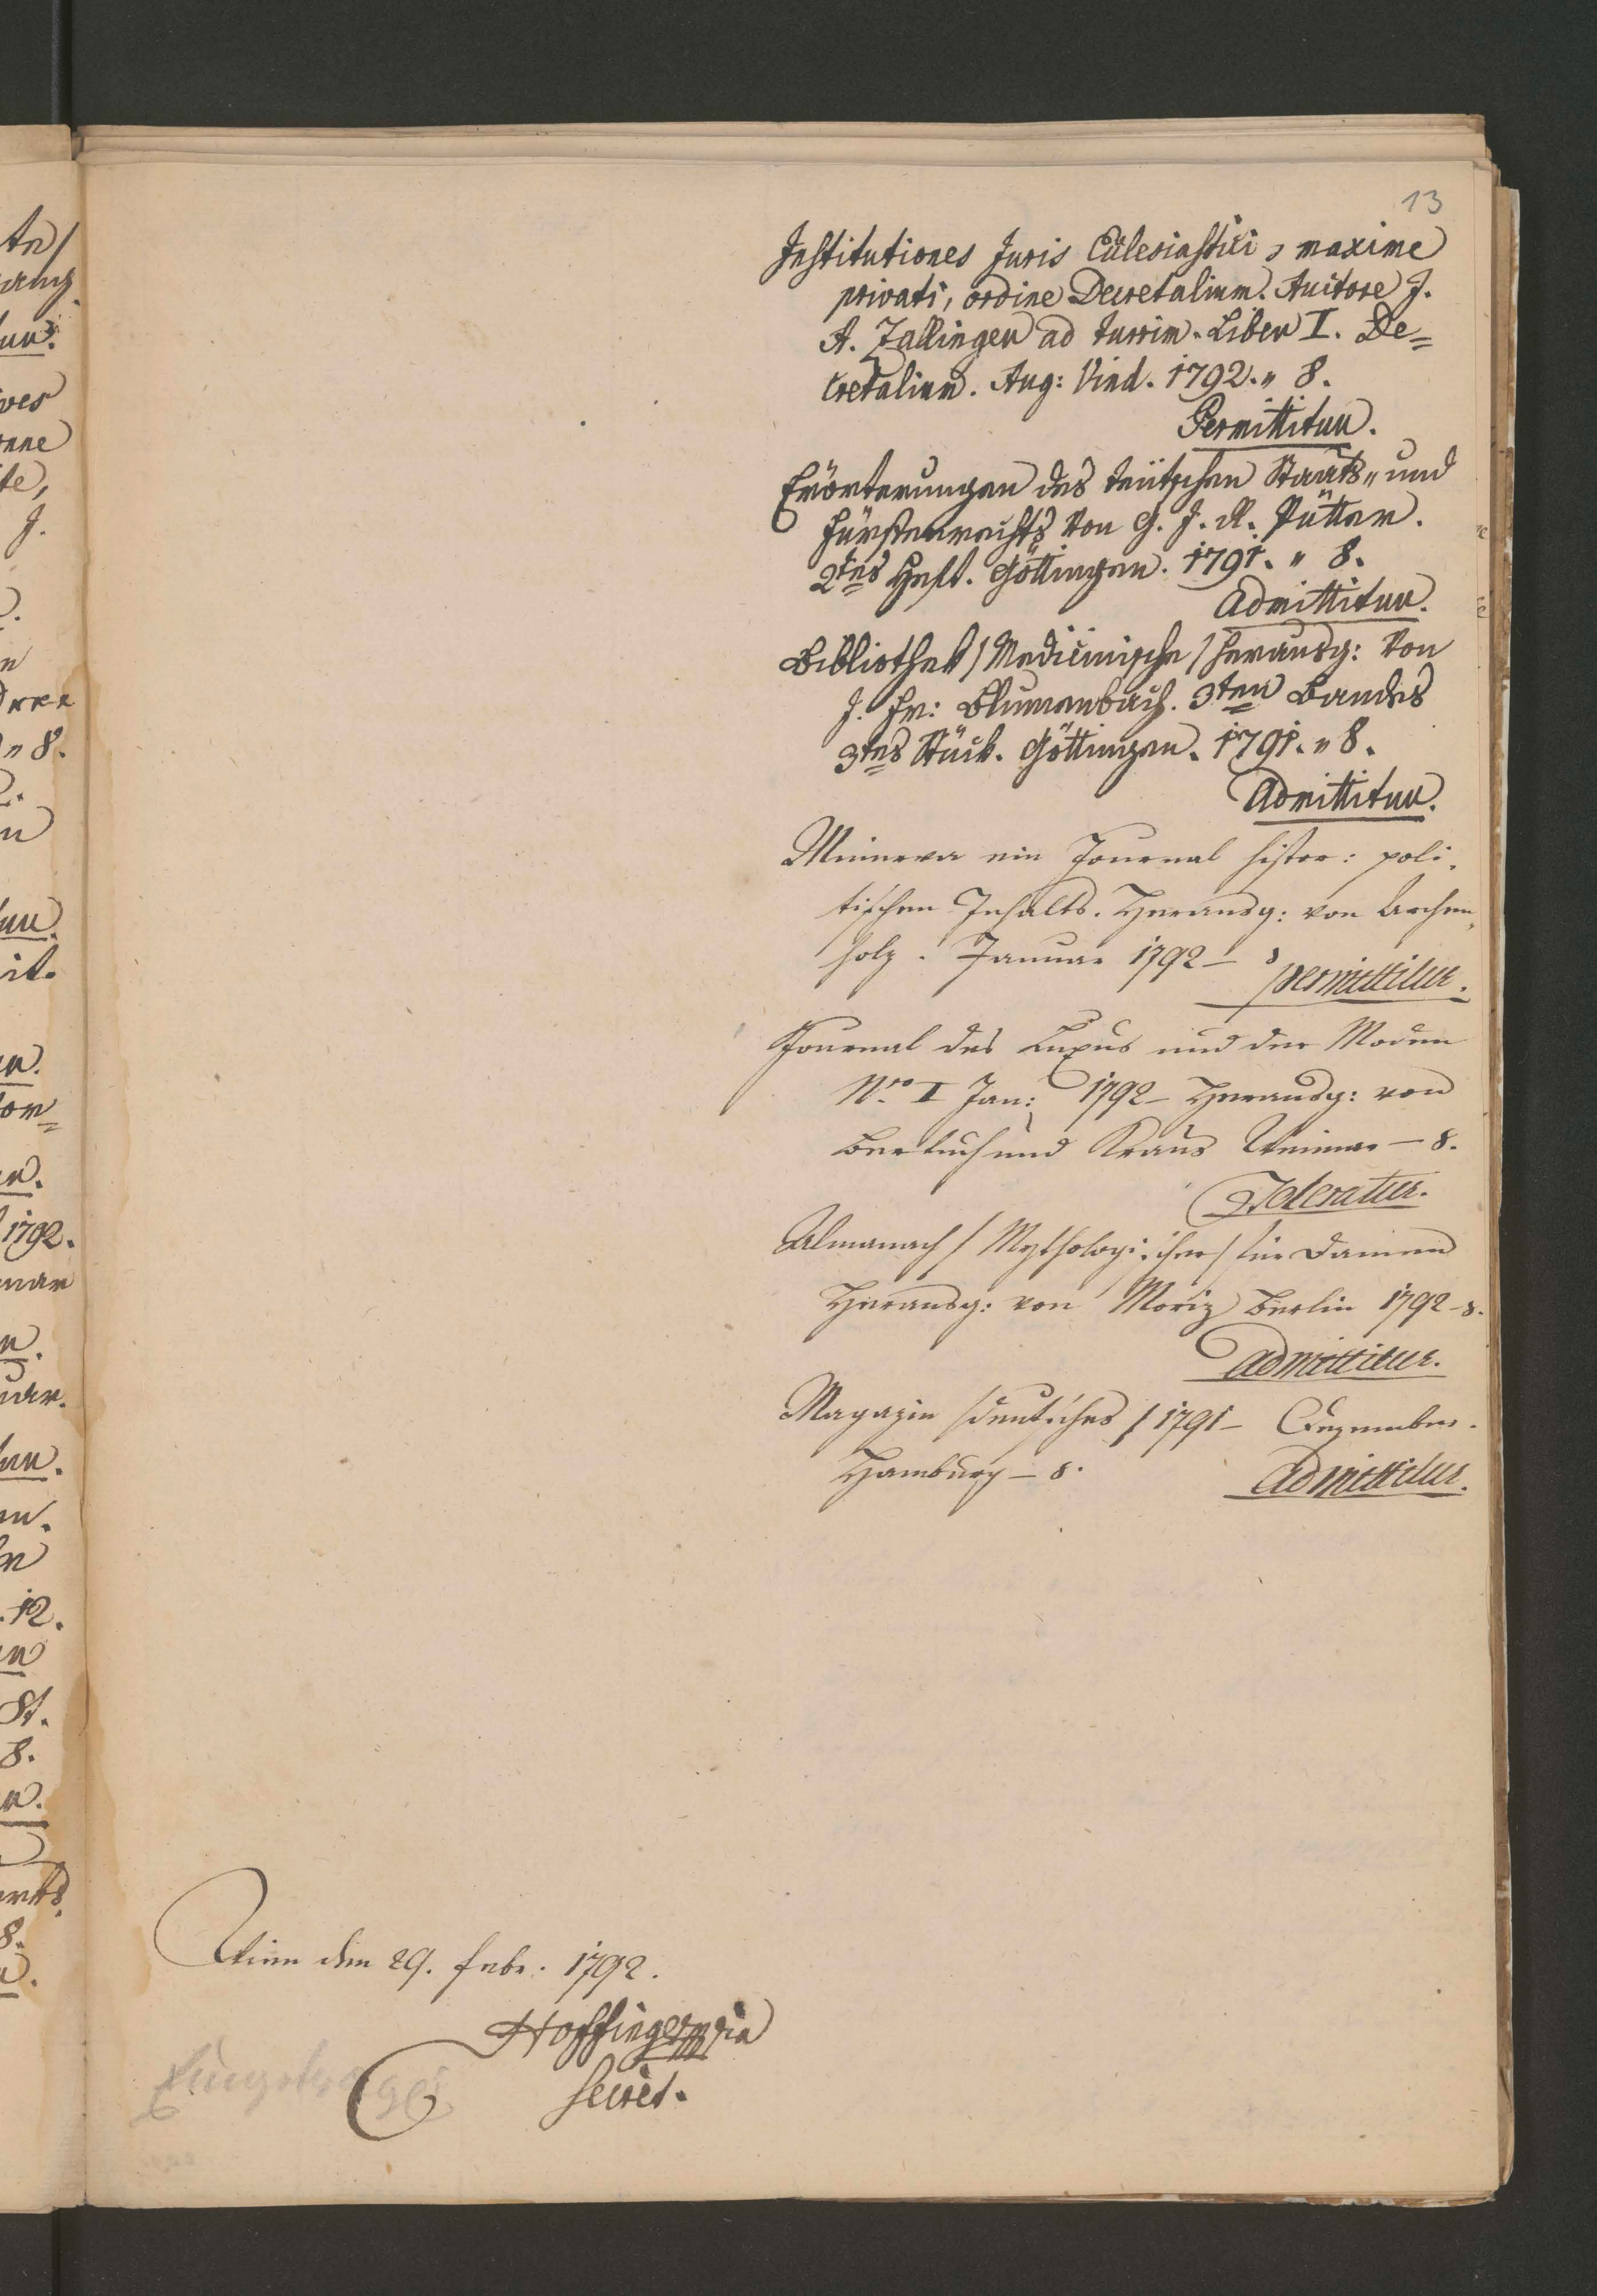 13
Institutiones Juris Ecclesiastici, maxime
privati, ordine Decretalium. Auctore J.
A. Zallinger ad turrim. Liber I. De=
cretalium. Aug: Vind. 1792. „ 8.
Permittitur.
Erörterungen des teütschen Staats„ und
Fürstenrechts von G. J. R. Pütter.
2tes Heft. Göttingen. 1791. „ 8.
Admittitur.
Bibliothek / Medicinische / herausg: von
J. Fr: Blumenbach. 3ten Bandes
3tes Stück. Göttingen. 1791. „ 8.
Admittitur.
Minerva ein Journal histor: poli„
tischen Inhalts. Herausg: von Archen„
holz. Januar 1792 – 8
permittitur.
Journal des Luxus und der Moden
Nro I Jan: 1792 – Herausg: von
Bertuch und Kraus Weimar – 8.
Toleratur.
Almanach / Mythologischer / für Damen
Herausg: von Moriz Berlin 1792 – 8.
admittitur.
Magazin / deutsches / 1791 – Dezember.
Hamburg – 8.
Admittitur.
Wien den 29. Febr. 1792.
Hoffinger mpria
Secret.